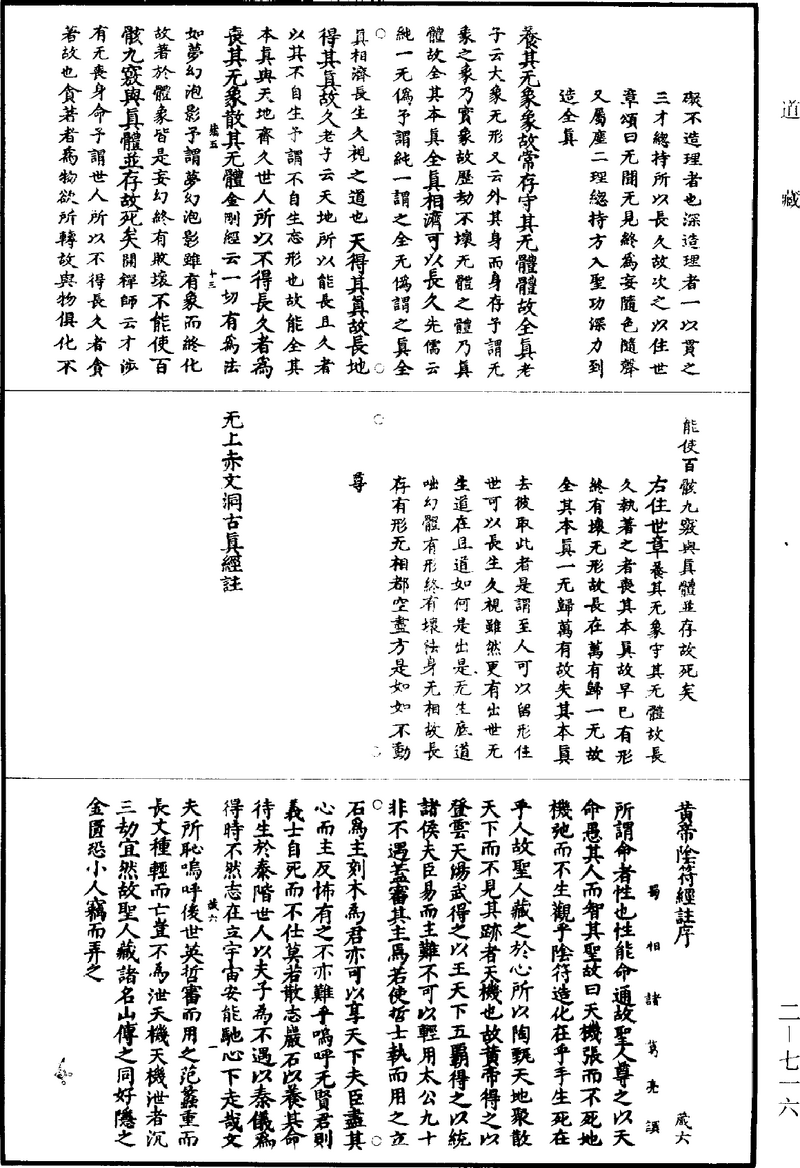 道藏
礙不造理者也深造理者一以貫之
三才總持所以長久故次之以住世
章頌曰无聞无見終為妄隨色隨聲
又屬塵二理總持方入聖功深力到
造全真
養其无象象故常存守其无體體故全真老
子云大象无形又云外其身而身存予謂无
象之象乃實象故歷劫不壞无體之體乃真
體故全其本真全真相濟可以長久先儒云
純一无偽予謂純一謂之全无偽謂之真全
真相濟長生久視之道也天得其真故長地
得其真故久老子云天地所以能長且久者
以其不自生予謂不自生忘形也故能全其
本真與天地齊久世人所以不得長久者為
喪其无象散其无體金剛經云一切有為法
十三
如夢幻泡影予謂夢幻泡影雖有象而終化
故著於體象皆是妄幻終有敗壞不能使百
骸九竅與真體並存故死矣開禪師云才涉
有无喪身命予謂世人所以不得長久者貪
著故也貪著者為物欲所轉故與物俱化不
能使百骸九竅與真體並存故死矣
右住世章養其无象守其无體故長
久執著之者喪其本真故早已有形
終有壞无形故長在萬有歸一无故
全其本真一无歸萬有故失其本真
去彼取此者是謂至人可以留形住
世可以長生久視雖然更有出世无
生道在且道如何是出是无生底道
咄幻體有形終有壞法身无相故長
存有形无相都空盡方是如如不動
尊
无上赤文洞古真經註
黃帝陰符經註序
蜀相諸葛亮譔
藏六
所謂命者性也性能命通故聖人尊之以天
命愚其人而智其聖故曰天機張而不死地
機弛而不生觀乎陰符造化在乎手生死在
乎人故聖人藏之於心所以陶甄天地聚散
天下而不見其跡者天機也故黃帝得之以
登雲天湯武得之以王天下五霸得之以統
諸侯夫臣易而主難不可以輕用太公九十
非不遇蓋審其主焉若使哲士執而用之立
石為主刻木為君亦可以享天下夫臣盡其
心而主反怖有之不亦難乎嗚呼无賢君則
義士自死而不仕莫若散志巖石以養其命
待生於泰階世人以夫子為不遇以秦儀為
得時不然志在立宇宙安能馳心下走哉丈
一
夫所恥嗚呼後世英哲審而用之范蠡重而
長文種輕而亡豈不為泄天機天機泄者沉
三劫宜然故聖人藏諸名山傳之同好隱之
金匱恐小人竊而弄之
二—七一六